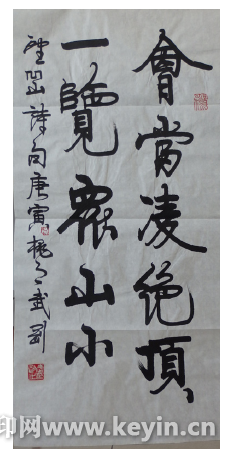 會當凌絕頂
一覽眾山小
詩句庚寅桃月武剛
印网 www.keyin.cn